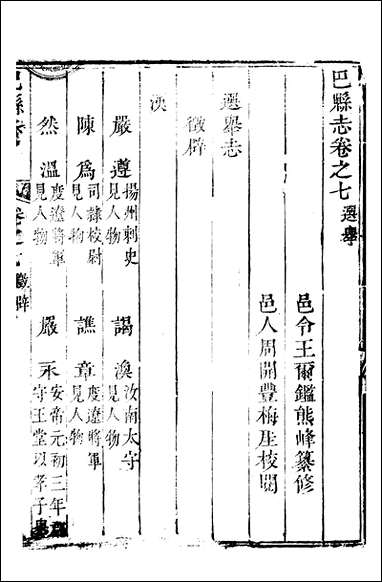 巴縣志卷之七 選舉
邑令王爾鑑熊峰纂修
邑人周開豐梅厓校閱
選舉志
徵辟
漢
嚴遵 揚州刺史 見人物 謁渙 汝南太守 見人物
陳爲 司隸校尉 見人物 譙章 度遼將軍 見人物
然溫 度遼將軍 見人物 嚴永 安帝元初三年 守王堂以孝子
巴縣志 卷之七 徵辟